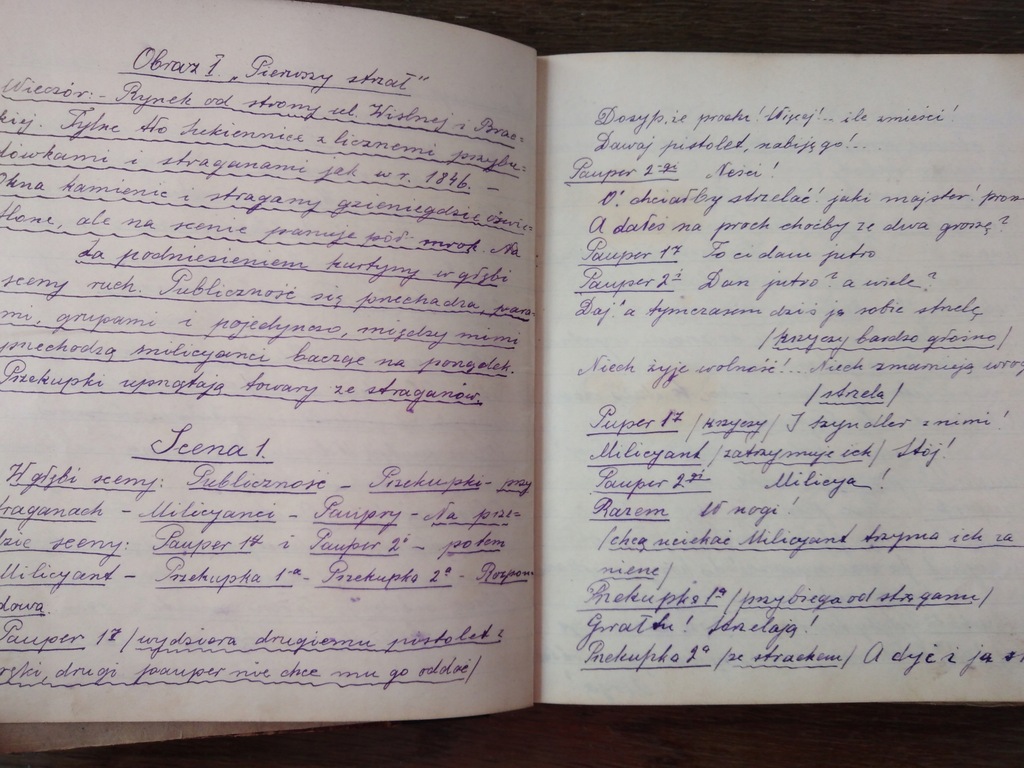 Obraz I. „Pierwszy strzał"
Wieczór: - Rynek od strony ul. Wiślnej i Brac=
kiej. Tylne tło Sukiennice z licznemi przybu=
dówkami i straganami jak w r. 1846. -
Okna kamienic i stragany gdzieniegdzie oświe=
tlone, ale na scenie panuje pół mrok. Na
Za podniesieniem kurtyny w głębi
sceny ruch. Publiczność się przechadza, para=
mi, grupami i pojedynczo, między nimi
przechodzą milicyanci bacząc na porządek.
Przekupki uprzątają towary ze straganów.
Scena 1.
W głębi sceny: Publiczność - Przekupki - przy
straganach - Milicyanci - Paupry - Na prze=
dzie sceny: Pauper 1y i Pauper 2i - potem
Milicyant - Przekupka 1a - Przekupka 2a -
dowa.
Pauper 1y /wydziera drugiemu pistolet z
ręki, drugi pauper nie chce mu go oddać/
Dosypie proszku! Więcej!.. ile zmieści!
Dawaj pistolet, nabiję go!...
Pauper 2-gi
O! chciałby strzelać! jaki majster!
A dałeś na proch choćby ze dwa grosze?
Pauper 1y To ci dam jutro
Pauper 2i Dam jutro? a wiele?
Daj! a tymczasem dziś ja sobie strzelę
/krzyczy bardzo głośno/
Niech żyje wolność!... Niech zmarnieją
/strzela/
Puper 1y /krzyczy/ I szyndler z nimi!
Milicyant /zatrzymuje ich/ Stój!
Pauper 2gi Milicya!
Razem W nogi!
/chcą uciekać Milicyant trzyma ich za
Przekupka 1a /przybiega od straganu/
Gwałtu! Strzelają!
Przekupka 2a /ze strachem/ A dyć i ja